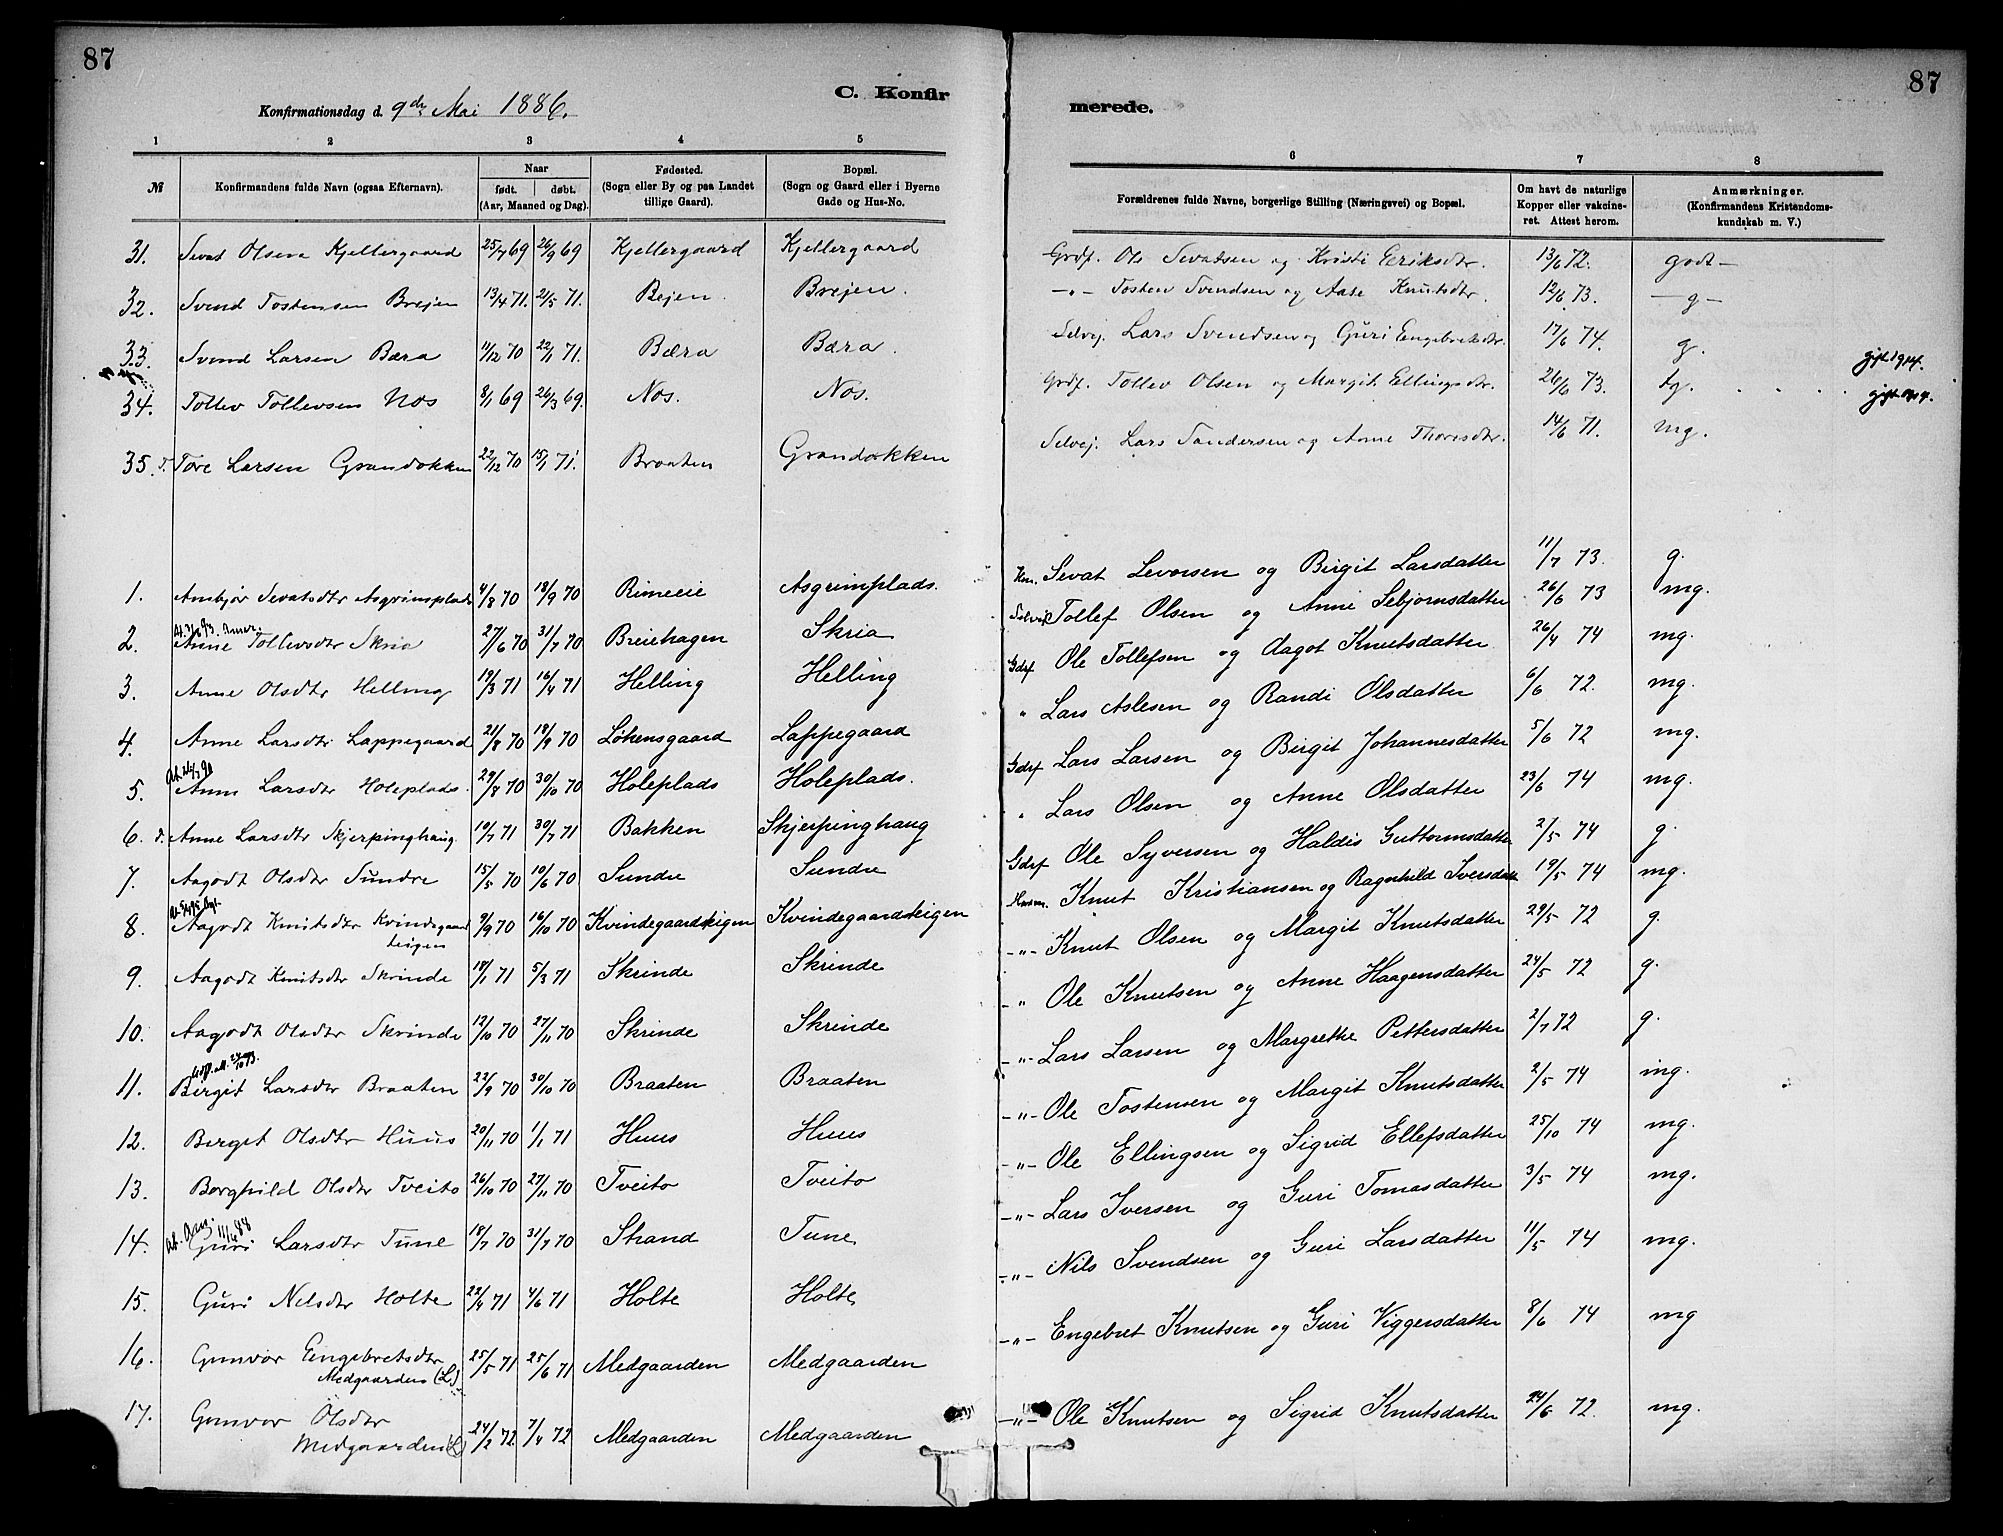 87
87
C. Konfirmerede.
Konfirmationsdag d. 9de Mai 1886.
1 2 3 4 5 6 7 8
№
Konfirmandens fulde Navn (ogsaa Efternavn).
Naar
født. døbt.
(Aar, Maaned og Dag).
Fødested.
(Sogn eller By og paa Landet
tillige Gaard).
Bopæl.
(Sogn og Gaard eller i Byerne
Gade og Hus-No.
Forældrenes fulde Navne, borgerlige Stilling (Næringsvei) og Bopæl.
Om havt de naturlige
Kopper eller vakcine-
ret. Attest herom.
Anmærkninger.
(Konfirmandens Kristendoms-
kundskab m. V.)
31. Sevat Olsen Kjellergaard 25/7 69 26/9 69 Kjellergaard Kjellergaard Grdf. Ole Sevatsen og Kristi Eriksdtr. 13/6 72. godt
32. Svend Tostensen Breien 13/4 71. 21/5 71. Bejen. Breien. -"- Tosten Svendsen og Aate Knutsdtr. 12/6 73. -g-
33. Svend Larsen Bæra 11/12 70 22/1 71. Bæra Bæra. Selvej. Lars Svendsen og Guri Engebretsdtr. 17/6 74. g. gift 1914.
34. Tollev Tollevsen Nos 8/1 69 26/3 69. Nos. Nos. Grdf. Tollev Olsen og Margit Ellingsdtr. 26/6 73. tg. gift 1914.
35. T. Tore Larsen Grandokken 22/12 70 15/1 71. Braaten Grandokken Selvej. Lars Sandersen og Anne Thoresdtr. 14/6 71. mg.
1. Ambjør Sevatsdtr Asgrimsplads 4/8 70 18/9 70 Rimeeie Asgrimplads. Hsm. Sevat Levorsen og Birgit Larsdatter 11/7 73. g.
2. Anne Tollevsdtr Skria 27/6 70 31/7 70 Breiehagen Skria Selvei Tollef Olsen og Anne Sebjørnsdatter 26/6 73 mg.
3. Anne Olsdtr Helling 19/3 71 16/4 71 Helling Helling Gdrf Ole Tollefsen og Aagot Knutsdatter 26/4 74 mg.
4. Anne Larsdtr Lappegaard 21/8 70 18/9 70 Løkensgaard Lappegaard " Lars Aslesen og Randi Olsdatter 6/6 72. mg.
5. Anne Larsdtr Holeplads. 29/8 70 30/10 70 Holeplads Holeplads. Gdrf Lars Larsen og Birgit Johannesdatter 5/6 72 mg.
6. d. Anne Larsdtr Skjerpinghaug. 10/7 71 30/7 71 Bakken Skjerpinghaug " Lars Olsen og Anne Olsdatter 23/6 74 mg.
7. Aagodt Olsdtr Sundre 15/5 70 10/6 70 Sundre Sundre Gdrf Ole Syversen og Haldis Guttormsdatter 2/5 74 g.
8. Aagodt Knutsdtr Kvindegaard
teigen 9/9 70 16/10 70 Kvindegaardteigen Kvindegaardsteigen Husm. Knut Kristiansen og Ragnhild Iversdatter 19/5 74 mg.
9. Aagodt Knutsdtr Skrinde 18/1 71 5/3 71 Skrinde Skrinde -"- Knut Olsen og Margit Knutsdatter 29/5 72 g.
10. Aagodt Olsdtr Skrinde 12/10 70 27/11 70 Skrinde Skrinde -" Ole Knutsen og Anne Haagensdatter 24/5 72 g.
11. Birgit Larsdtr Braaten 22/9 70 30/10 70 Braaten Braaten -"- Lars Larsen og Margrethe Pettersdatter 2/7 72 g.
12. Birgit Olsdtr Huus 20/11 70 1/1 71 Huus Huus -"- Ole Tostensen og Margit Knutsdatter 2/5 74 mg.
13. Borghild Olsdtr Tveito 26/10 70 27/11 70 Tveito Tveito -"- Ole Ellingsen og Sigrid Ellefsdatter 25/10 74 mg.
14. Guri Larsdtr Tune 18/7 70 31/7 70 Strand Tune -"- Lars Iversen og Guri Tomasdatter 3/5 74 mg.
15. Guri Nilsdtr Holte 22/4 71 4/6 71 Holte Holte -"- Nils Svendsen og Guri Larsdatter 11/5 74 mg.
16. Gunvor Engebretsdtr
Medgaarden (L) 25/5 71 25/6 71 Medgaarden Medgaarden -"- Engebret Knutsen og Guri Viggersdatter 8/6 74 mg
17. Gunvor Olsdtr
Medgaarden (L) 24/2 72 7/4 72 Medgaarden Medgaarden -"- Ole Knutsen og Sigrid Knutsdatter 24/6 72. mg.